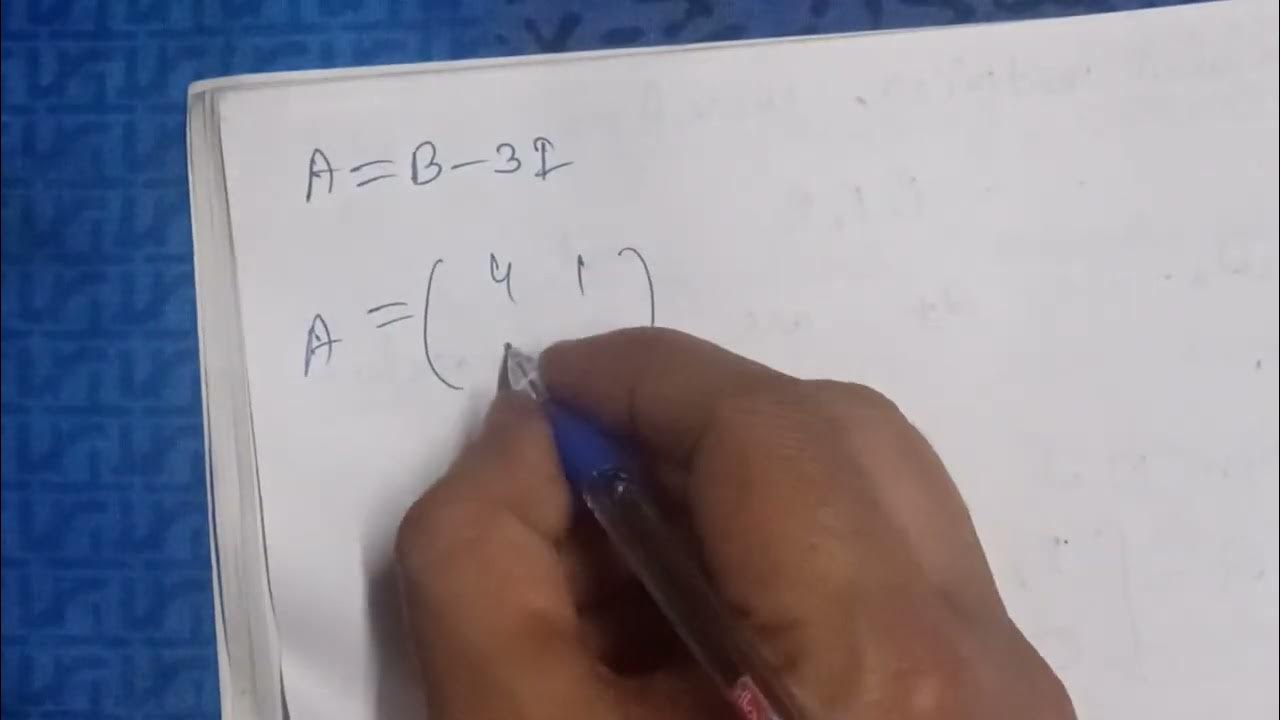 A = B - 3I
A = ( 4 1 )